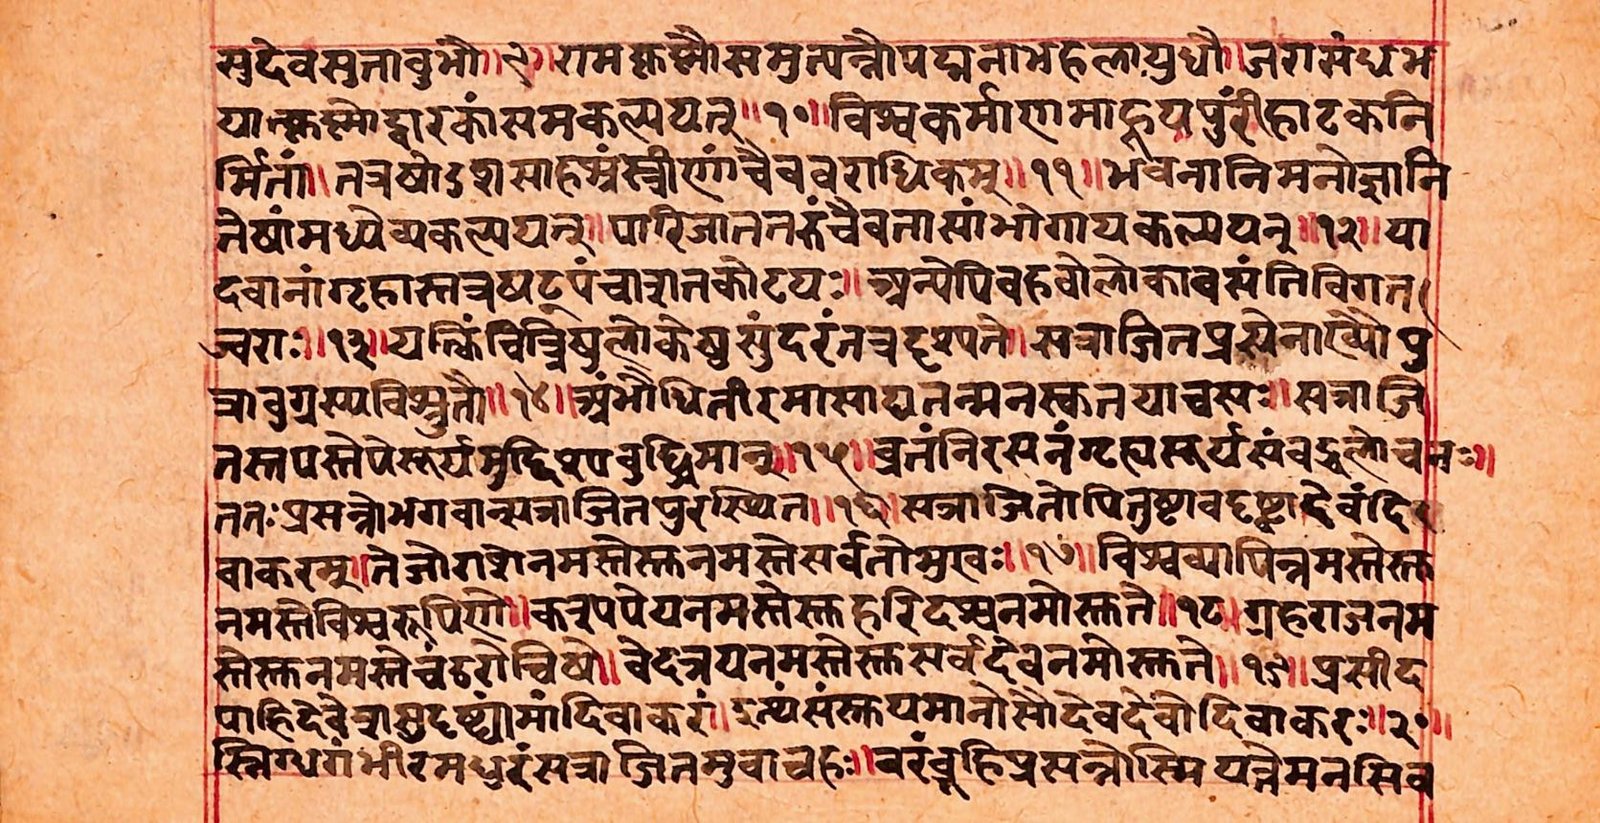 सुदेवसुतावुभौ॥९॥रामकृष्णौसमुत्पन्नौपद्मनाभहलायुधौ।जरासंधभ
यात्कृष्णोद्वारकांसमकल्पयत्॥१०॥विश्वकर्माणमाहूयपुरींहाटकनि
र्मितां॥तत्रषोडशसाहस्रंस्त्रीणांचैववराधिकम्॥११॥भवनानिमनोज्ञानि
तेषांमध्येव्यकल्पयत्॥पारिजाततरुंचैवतासांभोगायकल्पयत्॥१२॥या
दवानांगृहास्तत्रषट्पंचाशतकोटयः॥अन्येपिबहवोलोकावसंतिविगत
ज्वराः॥१३॥यत्किंचित्रिषुलोकेषुसुंदरंतत्रदृश्यते॥सत्राजितप्रसेनाख्यौपु
त्रावुग्रस्यविश्रुतौ॥१४॥अंभोधितीरमासाद्यतन्मनस्कतयाचसः॥सत्राजि
तस्तपस्तेपेसूर्यमुद्दिश्यबुद्धिमान्॥१५॥व्रतंनिरसनंगृह्यसूर्यसंबद्धलोचनः॥
ततःप्रसन्नोभगवान्सत्राजितपुरस्थित॥१६॥सत्राजितोपितुष्टावदृष्ट्वादेवंदि
वाकरम्॥तेजोराशेनमस्तेस्तुनमस्तेसर्वतोमुखः॥१७॥विश्वव्यापिन्नमस्तेस्तु
नमस्तेविश्वरूपिणे॥कश्यपेयनमस्तेस्तुहरिदश्वनमोस्तुते॥१८॥ग्रहराजनम
स्तेस्तुनमस्तेचंडरोचिषे॥वेदत्रयनमस्तेस्तुसर्वदेवनमोस्तुते॥१९॥प्रसीद
पाहिदेवेशसुदृष्ट्यामांदिवाकरं॥इत्थंसंस्तुयमानोसौदेवदेवोदिवाकरः॥२०॥
स्निग्धगंभीरमधुरंसत्राजितमुवाचहः॥वरंब्रूहिप्रसन्नोस्मियत्तेमनसिव